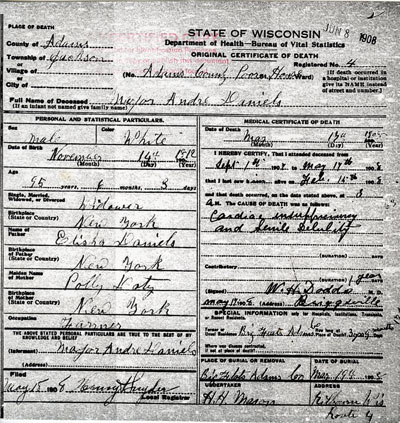 PLACE OF DEATH
County of Adams
Township of Jackson
Village of
City of
STATE OF WISCONSIN
Department of Health—Bureau of Vital Statistics
ORIGINAL CERTIFICATE OF DEATH
JUN 8 1908
Registered No. 4
(No. Adams County Poor House Ward)
(If death occurred in a hospital or institution give its NAME instead of street and number.)
Full Name of Deceased Major Andre Daniels
(If an infant not named give family name)
PERSONAL AND STATISTICAL PARTICULARS.
Sex Male
Color White
Date of Birth November 14th 1812
(Month) (Day) (Year)
Age
95 years, 6 months 3 days
Married, Widowed or Divorced
Widower
Birthplace (State or Country)
New York
Name of Father
Elisha Daniels
Birthplace of Father (State or Country)
New York
Maiden Name of Mother
Polly
Birthplace of Mother (State or Country)
New York
Occupation
Farmer
THE ABOVE STATED PERSONAL PARTICULARS ARE TRUE TO THE BEST OF MY KNOWLEDGE AND BELIEF
(Informant) Major Andre Daniels
Filed May 18 1908
Local Registrar
MEDICAL CERTIFICATE OF DEATH
Date of Death May 17th 1908
(Month) (Day) (Year)
I HEREBY CERTIFY, That I attended deceased from
Sept 1st 190 to May 17th 1908
that I last saw alive on Feb. 15th 1908
and that death occurred, on the date stated above, at 3
A.M. The CAUSE OF DEATH was as follows:
Cardiac insufficiency
and Senile Debility
(DURATION) DAYS
Contributory
(DURATION) 1 year DAYS
(Signed) W.H. Dodds M.D.
May 17 1908 (Address) Briggsville
SPECIAL INFORMATION only for Hospitals, Institutions, Transients,
Place of Death?
If not at place of death?
PLACE OF BURIAL OR REMOVAL
Adams Co
DATE OF BURIAL
May 19th 1908
UNDERTAKER
H.H. Mason
ADDRESS
Route 4